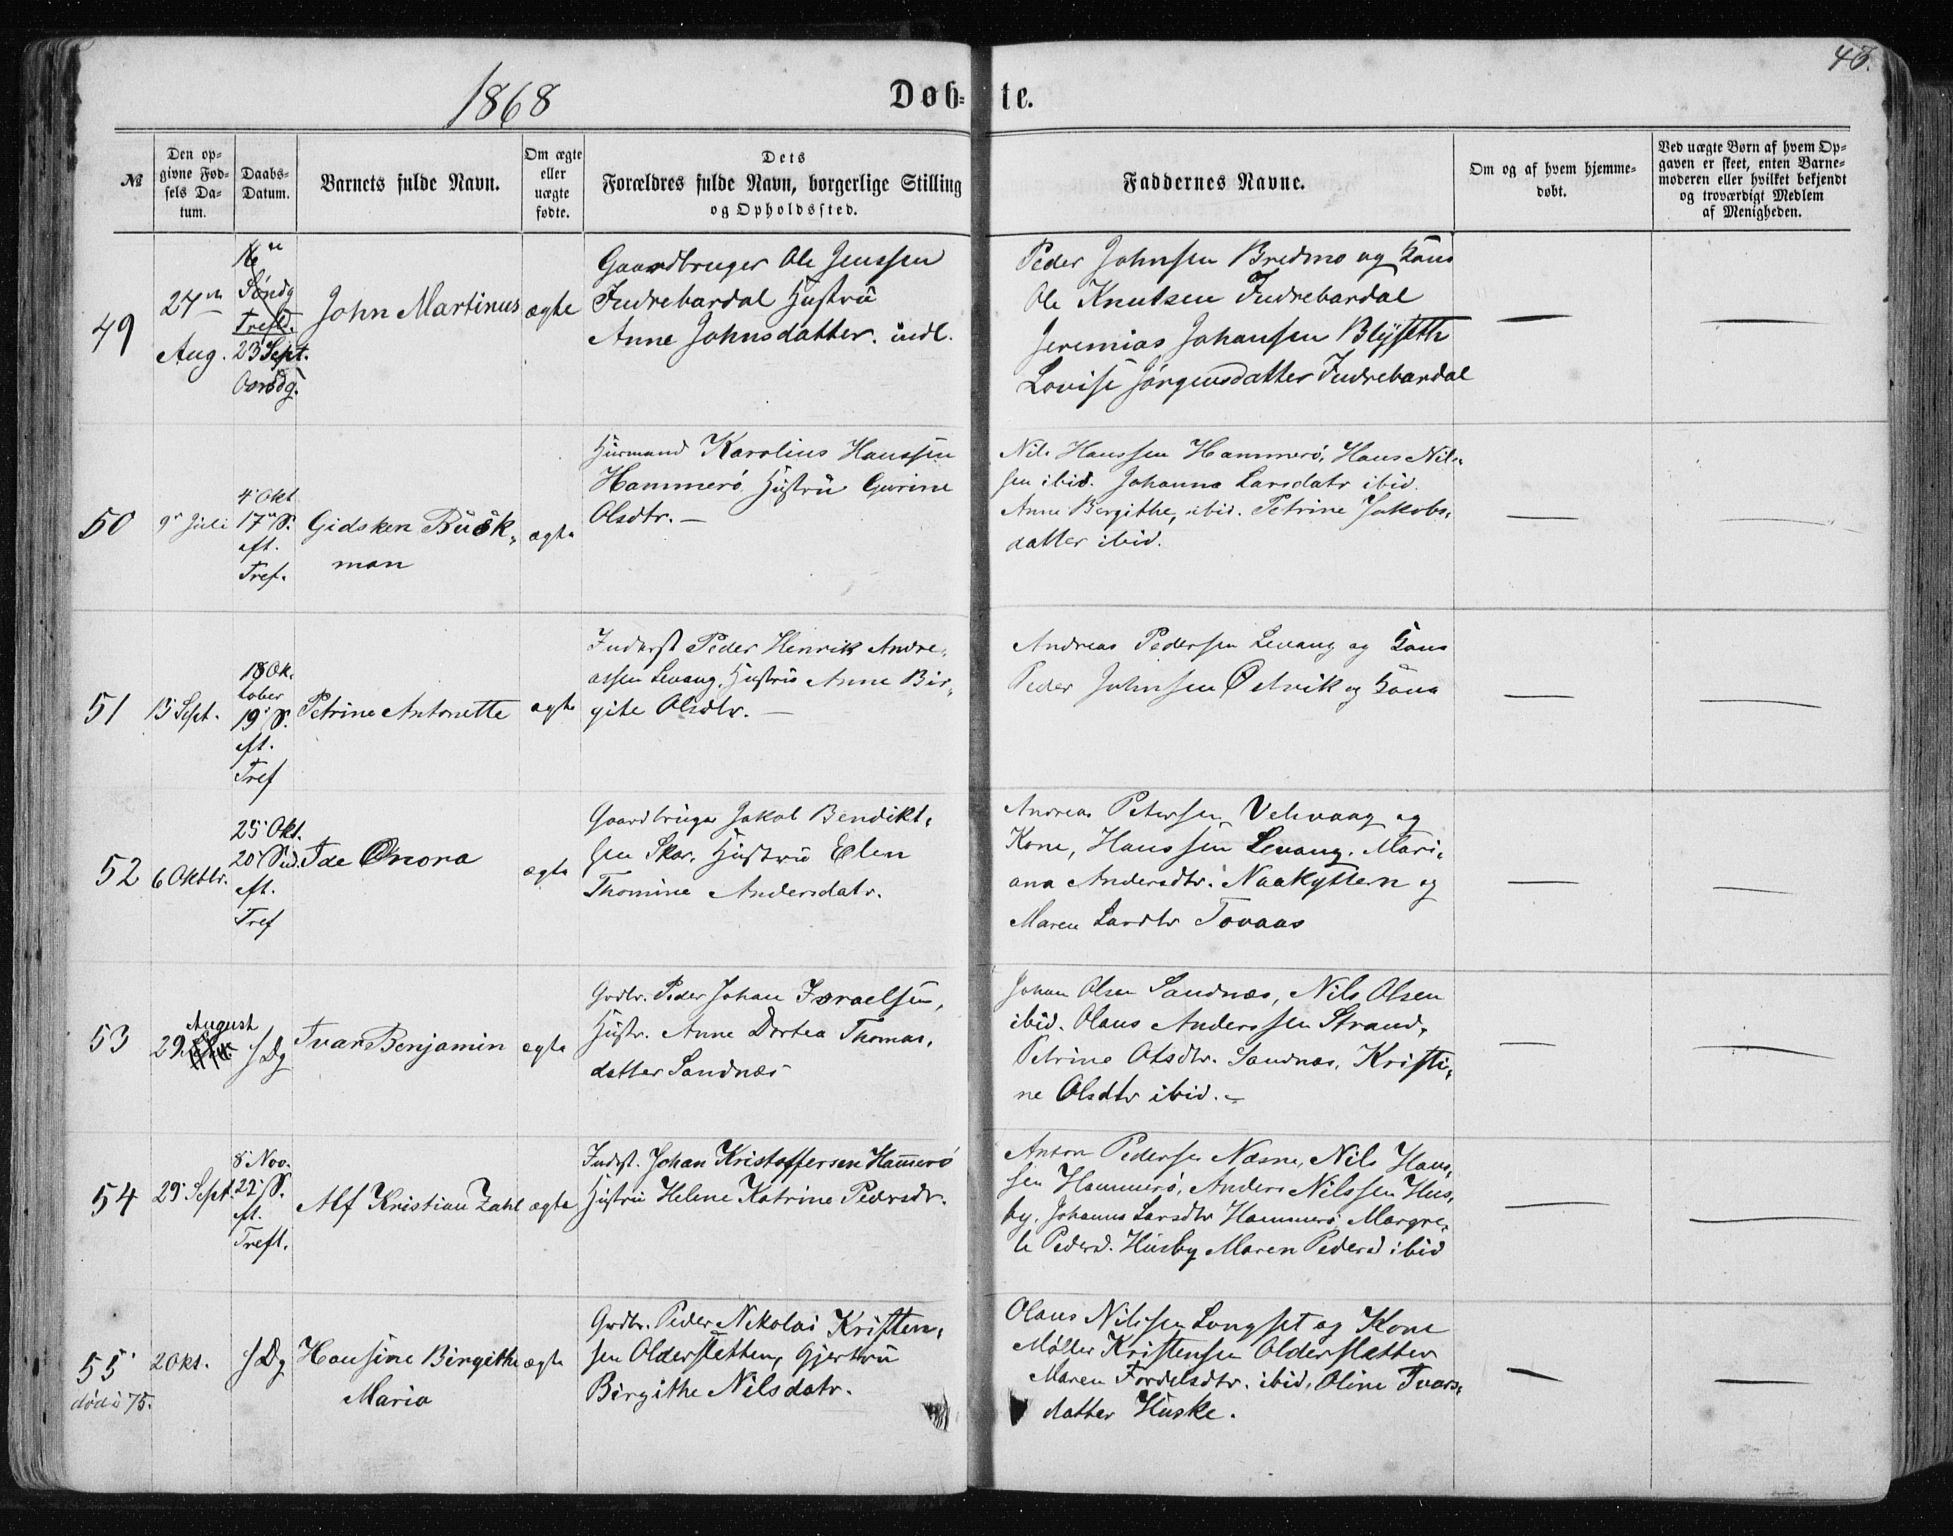 48.
1868
Døb-te.
№
Den op-
givne Fød-
sels Da-
tum.
Daabs-
Datum.
Barnets fulde Navn.
Om ægte
eller
uægte
fødte.
Dets
Forældres fulde Navn, borgerlige Stilling
og Opholdssted.
Faddernes Navne.
Om og af hvem hjemme-
døbt.
Ved uægte Børn af hvem Op-
gaven er skeet, enten Barne-
moderen eller hvilket bekjendt
og troværdigt Medlem
af Menigheden.
49
27de
Aug.
Søndg
Trefd.
23 Sept.
Onsdg.
John Martinus
ægte
Gaardbruger Ole Jenssen
Indrebardal Hustru
Anne Johnsdatter. indl.
Peder Johnsen Bredmo og Kone
Ole Knutsen Indrebardal
Jeremias Johansen Blyseth
Lovise Jørgensdatter Indrebardal
50
9' Juli
4' Okt.
17' S.
eft.
Tref.
Gidsken Buck-
man
ægte
Huusmand Karolius Hanssen
Hammerø Hustru Gurine
Olsdtr. —
Nils Hanssen Hammerø, Hans Nils-
sen ibid. Johanna Larsdatr ibid.
Anne Bergithe, ibid. Petrine Jakobs-
datter ibid.
51
15 Sept.
18 Ok-
tober
19' S.
eft.
Tref
Petrine Antonette
ægte
Inderst Peder Henrik Andre-
assen Levang, Hustru Anne Bir-
gite Olsdtr. —
Andreas Pedersen Levang og Kone
Peder Johnsen Østvik og Kone
52
6 Oktbr.
25' Okt.
20' S.
eft.
Tref
Ide Onora
ægte
Gaardbruger Jakob Bendikt-
sen Skar, Hustru Elen
Thomine Andersdatr.
Andreas Petersen Velvaag og
Kone, Hanssen Levang. Mari-
ana Andersdtr. Naakyttern og
Maren Larsdtr Tovaas
53
29
August
s Dg
Ivar Benjamin
ægte
Grdbr. Peder Johan Israelsen,
Hustr. Anne Dortea Thomas-
datter Sandnes
Johan Olsen Sandnæs, Nils Olsen
ibid. Olaus Anderssen Strand,
Petrine Olsdtr. Sandnæs, Kristi-
ne Olsdtr ibid. —
54
29 Sept.
8' Nov.
22' S.
eft.
Treft.
Alf Kristian Zahl
ægte
Inderst. Johan Kristoffersen Hammerø
Hustru Helene Katrine Pedersdr.
Anton Pedersen Næsne, Nils Hans-
sen Hammerø, Anders Nilssen Hus-
by. Johanna Larsdtr Hammerø, Margre-
te Pedersd. Husby Maren Pedersd ibid
55
død i 75.
2 Okt.
s Dg
Hansine Birgithe
Maria
ægte
Grdbr. Peder Nikolai Kristen-
sen Oldersletten, Gjertru
Birgithe Nilsdatr.
Olaus Nilssen Langset og Kone
Møller Kristensen Oldersletten
Maren Fordelsdtr. ibid, Oline Ivars-
datter Huske.